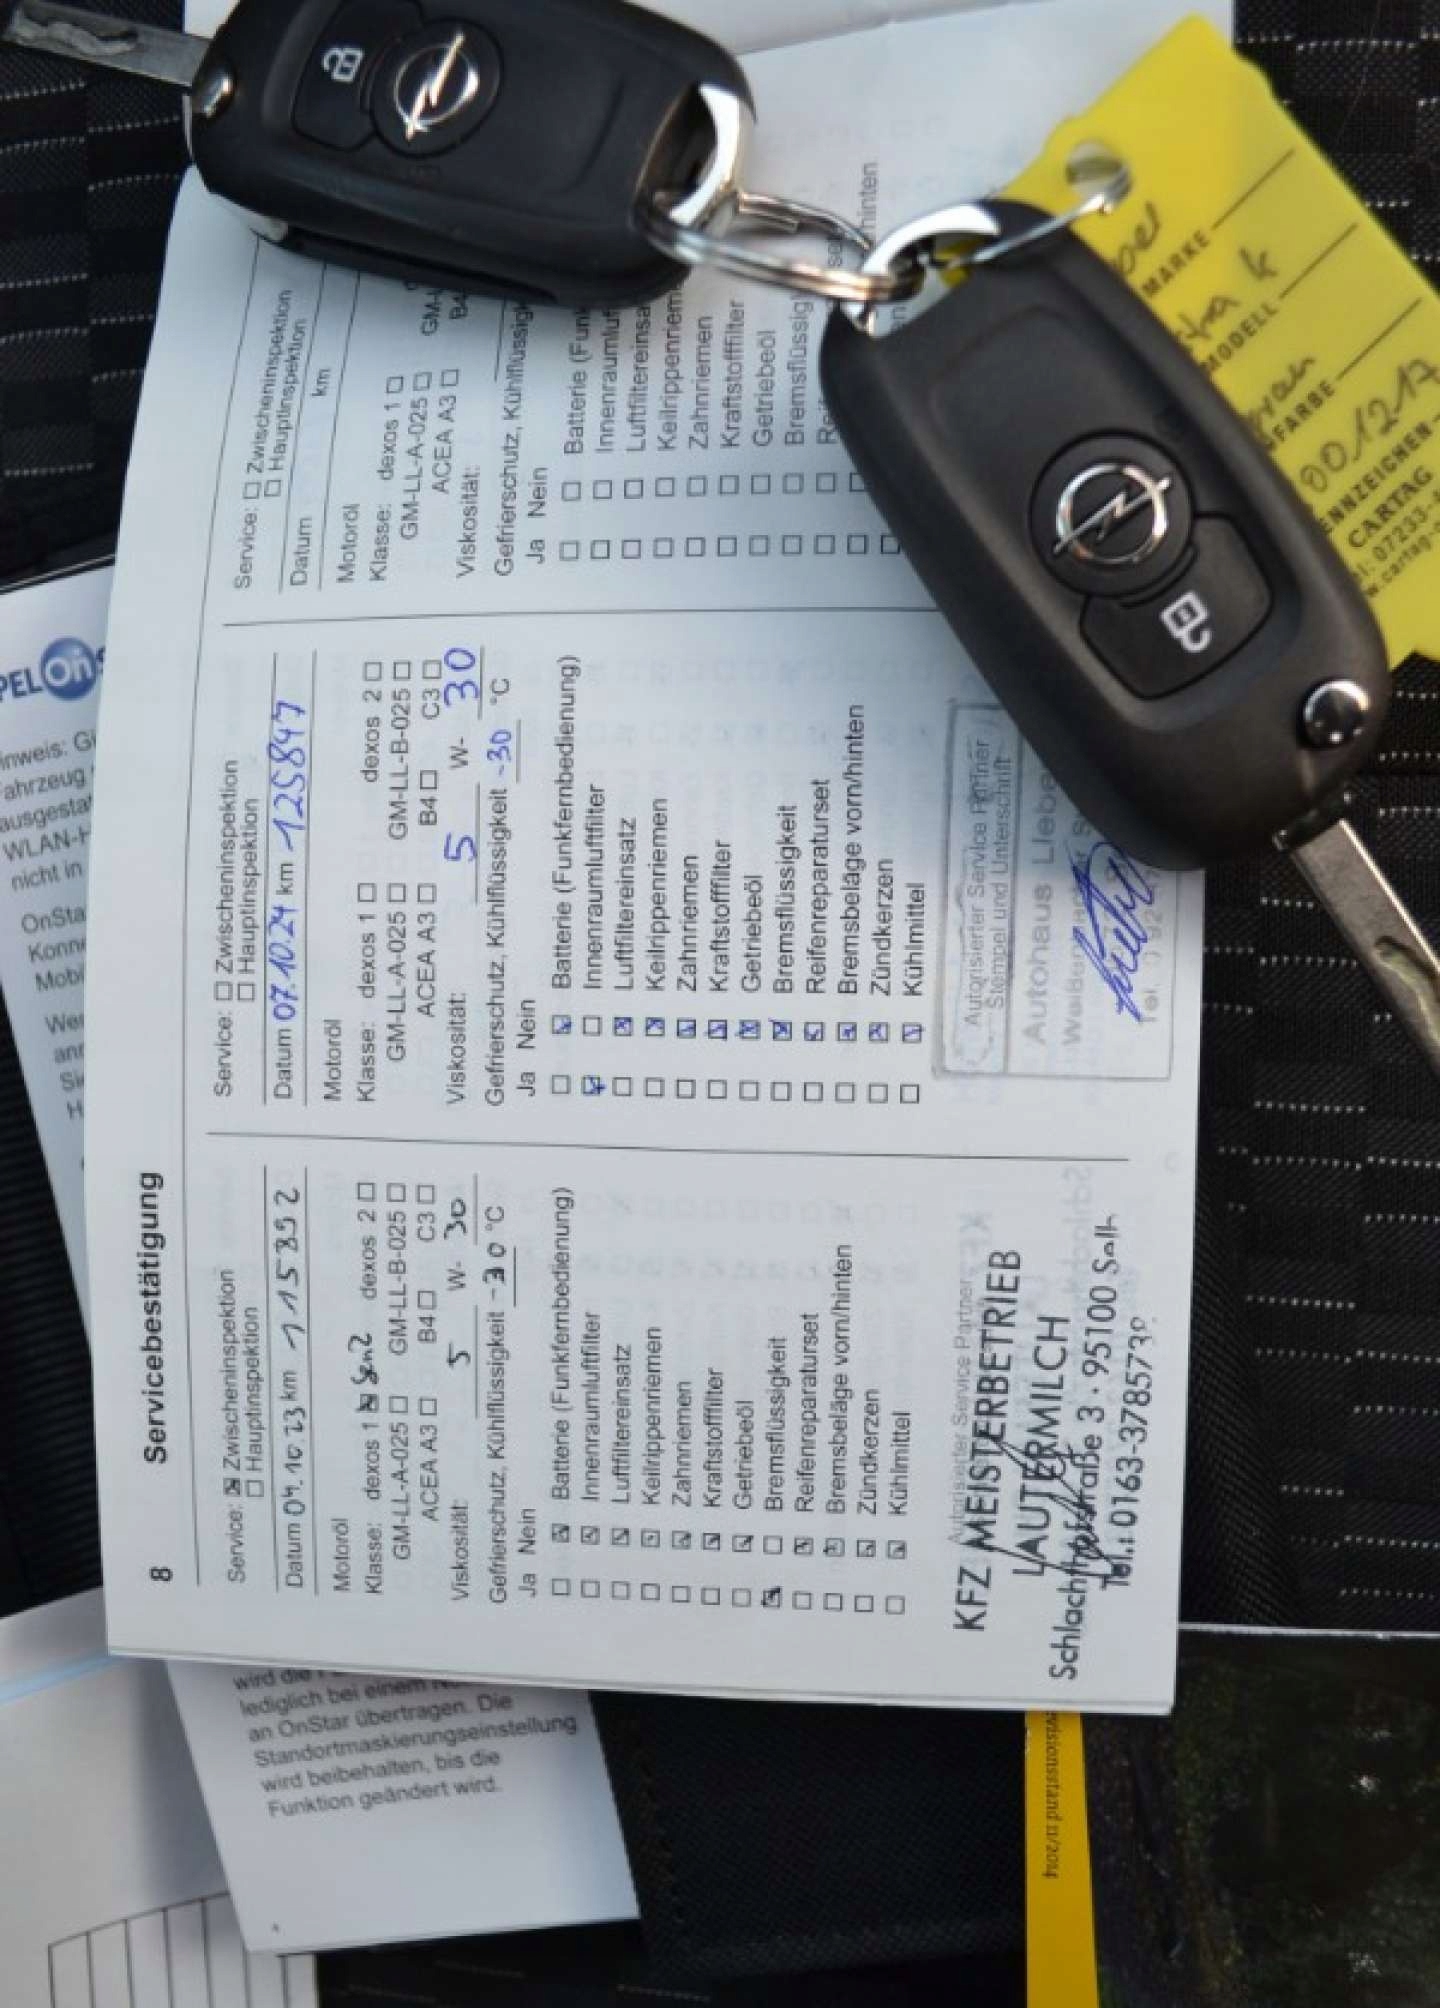 8 Servicebestätigung
Service: Zwischeninspektion
Hauptinspektion
Datum 04.10 23 km 115392
Motoröl
Klasse: dexos 1 Gen2 dexos 2
GM-LL-A-025 GM-LL-B-025
ACEA A3 B4 C3
Viskosität: 5 W- 30
Gefrierschutz, Kühlflüssigkeit -30 °C
Ja Nein
Batterie (Funkfernbedienung)
Innenraumluftfilter
Luftfiltereinsatz
Keilrippenriemen
Zahnriemen
Kraftstofffilter
Getriebeöl
Bremsflüssigkeit
Reifenreparaturset
Bremsbeläge vorn/hinten
Zündkerzen
Kühlmittel
Autorisierter Service Partner
KFZ MEISTERBETRIEB
LAUTERMILCH
Schlachthofstraße 3 · 95100 Selb
Tel.: 0163-378573
Service: Zwischeninspektion
Hauptinspektion
Datum 07.10.24 km 125847
Motoröl
Klasse: dexos 1 dexos 2
GM-LL-A-025 GM-LL-B-025
ACEA A3 B4 C3
Viskosität: 5 W- 30
Gefrierschutz, Kühlflüssigkeit -30 °C
Ja Nein
Batterie (Funkfernbedienung)
Innenraumluftfilter
Luftfiltereinsatz
Keilrippenriemen
Zahnriemen
Kraftstofffilter
Getriebeöl
Bremsflüssigkeit
Reifenreparaturset
Bremsbeläge vorn/hinten
Zündkerzen
Kühlmittel
Autorisierter Service Partner
Stempel und Unterschrift
Autohaus
Tel.
Service: Zwischeninspektion
Hauptinspektion
Datum km
Motoröl
Klasse: dexos 1
GM-LL-A-025 GM-
ACEA A3 B4
Viskosität:
Gefrierschutz, Kühlflüssig
Ja Nein
Batterie (Funk
Innenraumluf
Luftfiltereinsa
Keilrippenriem
Zahnriemen
Kraftstofffilter
Getriebeöl
Bremsflüssig
hinten
MARKE
MODELL
NFARBE
001217
ENNZEICHEN
CARTAG
07233-
w.cartag-
PEL On
inweis:
WLAN-
nicht in
OnSta
Mobi
wird die
lediglich bei einem
an OnStar übertragen. Die
Standortmaskierungseinstellung
wird beibehalten, bis die
Funktion geändert wird.
visionsstand 11/2014